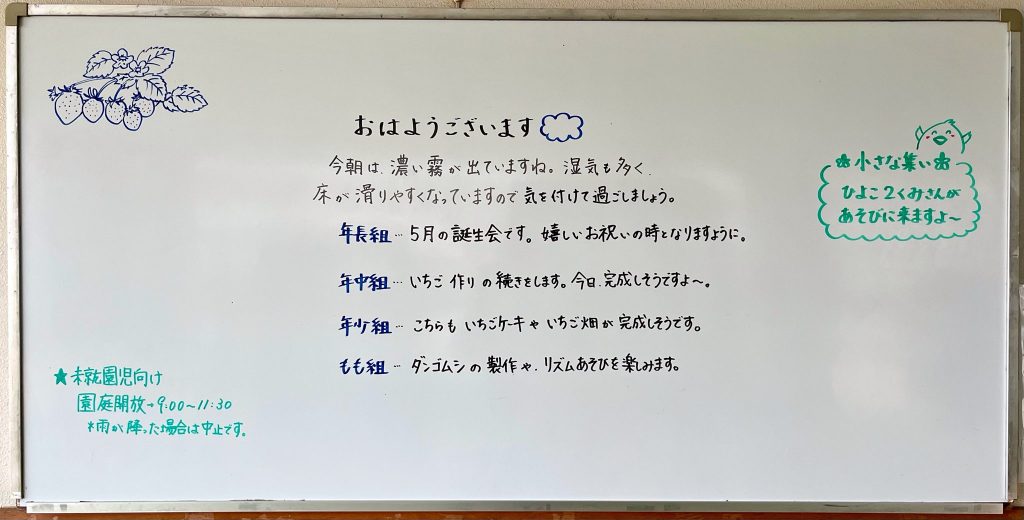 おはようございます
今朝は、濃い霧が出ていますね。湿気も多く、
床が滑りやすくなっていますので気を付けて過ごしましょう。
年長組…5月の誕生会です。嬉しいお祝いの時となりますように。
年中組…いちご作りの続きをします。今日、完成しそうですよ〜。
年少組…こちらもいちごケーキやいちご畑が完成しそうです。
もも組…ダンゴムシの製作や、リズムあそびを楽しみます。
小さな集い
ひよこ2くみさんが
あそびに来ますよ〜
★未就園児向け
園庭開放→9:00〜11:30
*雨が降った場合は中止です。